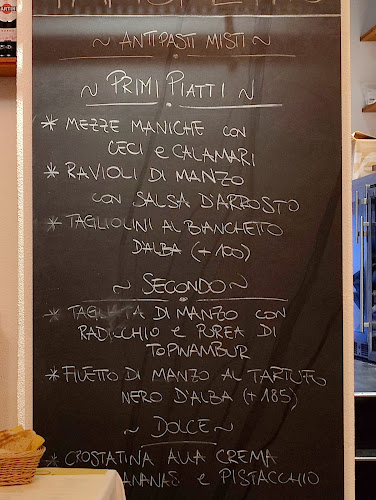 ~ ANTIPASTI MISTI ~
~ PRIMI PIATTI ~
* MEZZE MANICHE CON
CECI e CALAMARI
* RAVIOLI DI MANZO
CON SALSA D'ARROSTO
* TAGLIOLINI AL BIANCHETTO
D'ALBA (+100)
~ SECONDO ~
* TAGLIATA DI MANZO CON
RADICCHIO e PUREA DI
TOPINAMBUR
* FILETTO DI MANZO AL TARTUFO
NERO D'ALBA (+185)
~ DOLCE ~
* CROSTATINA ALLA CREMA
ANANAS e PISTACCHIO